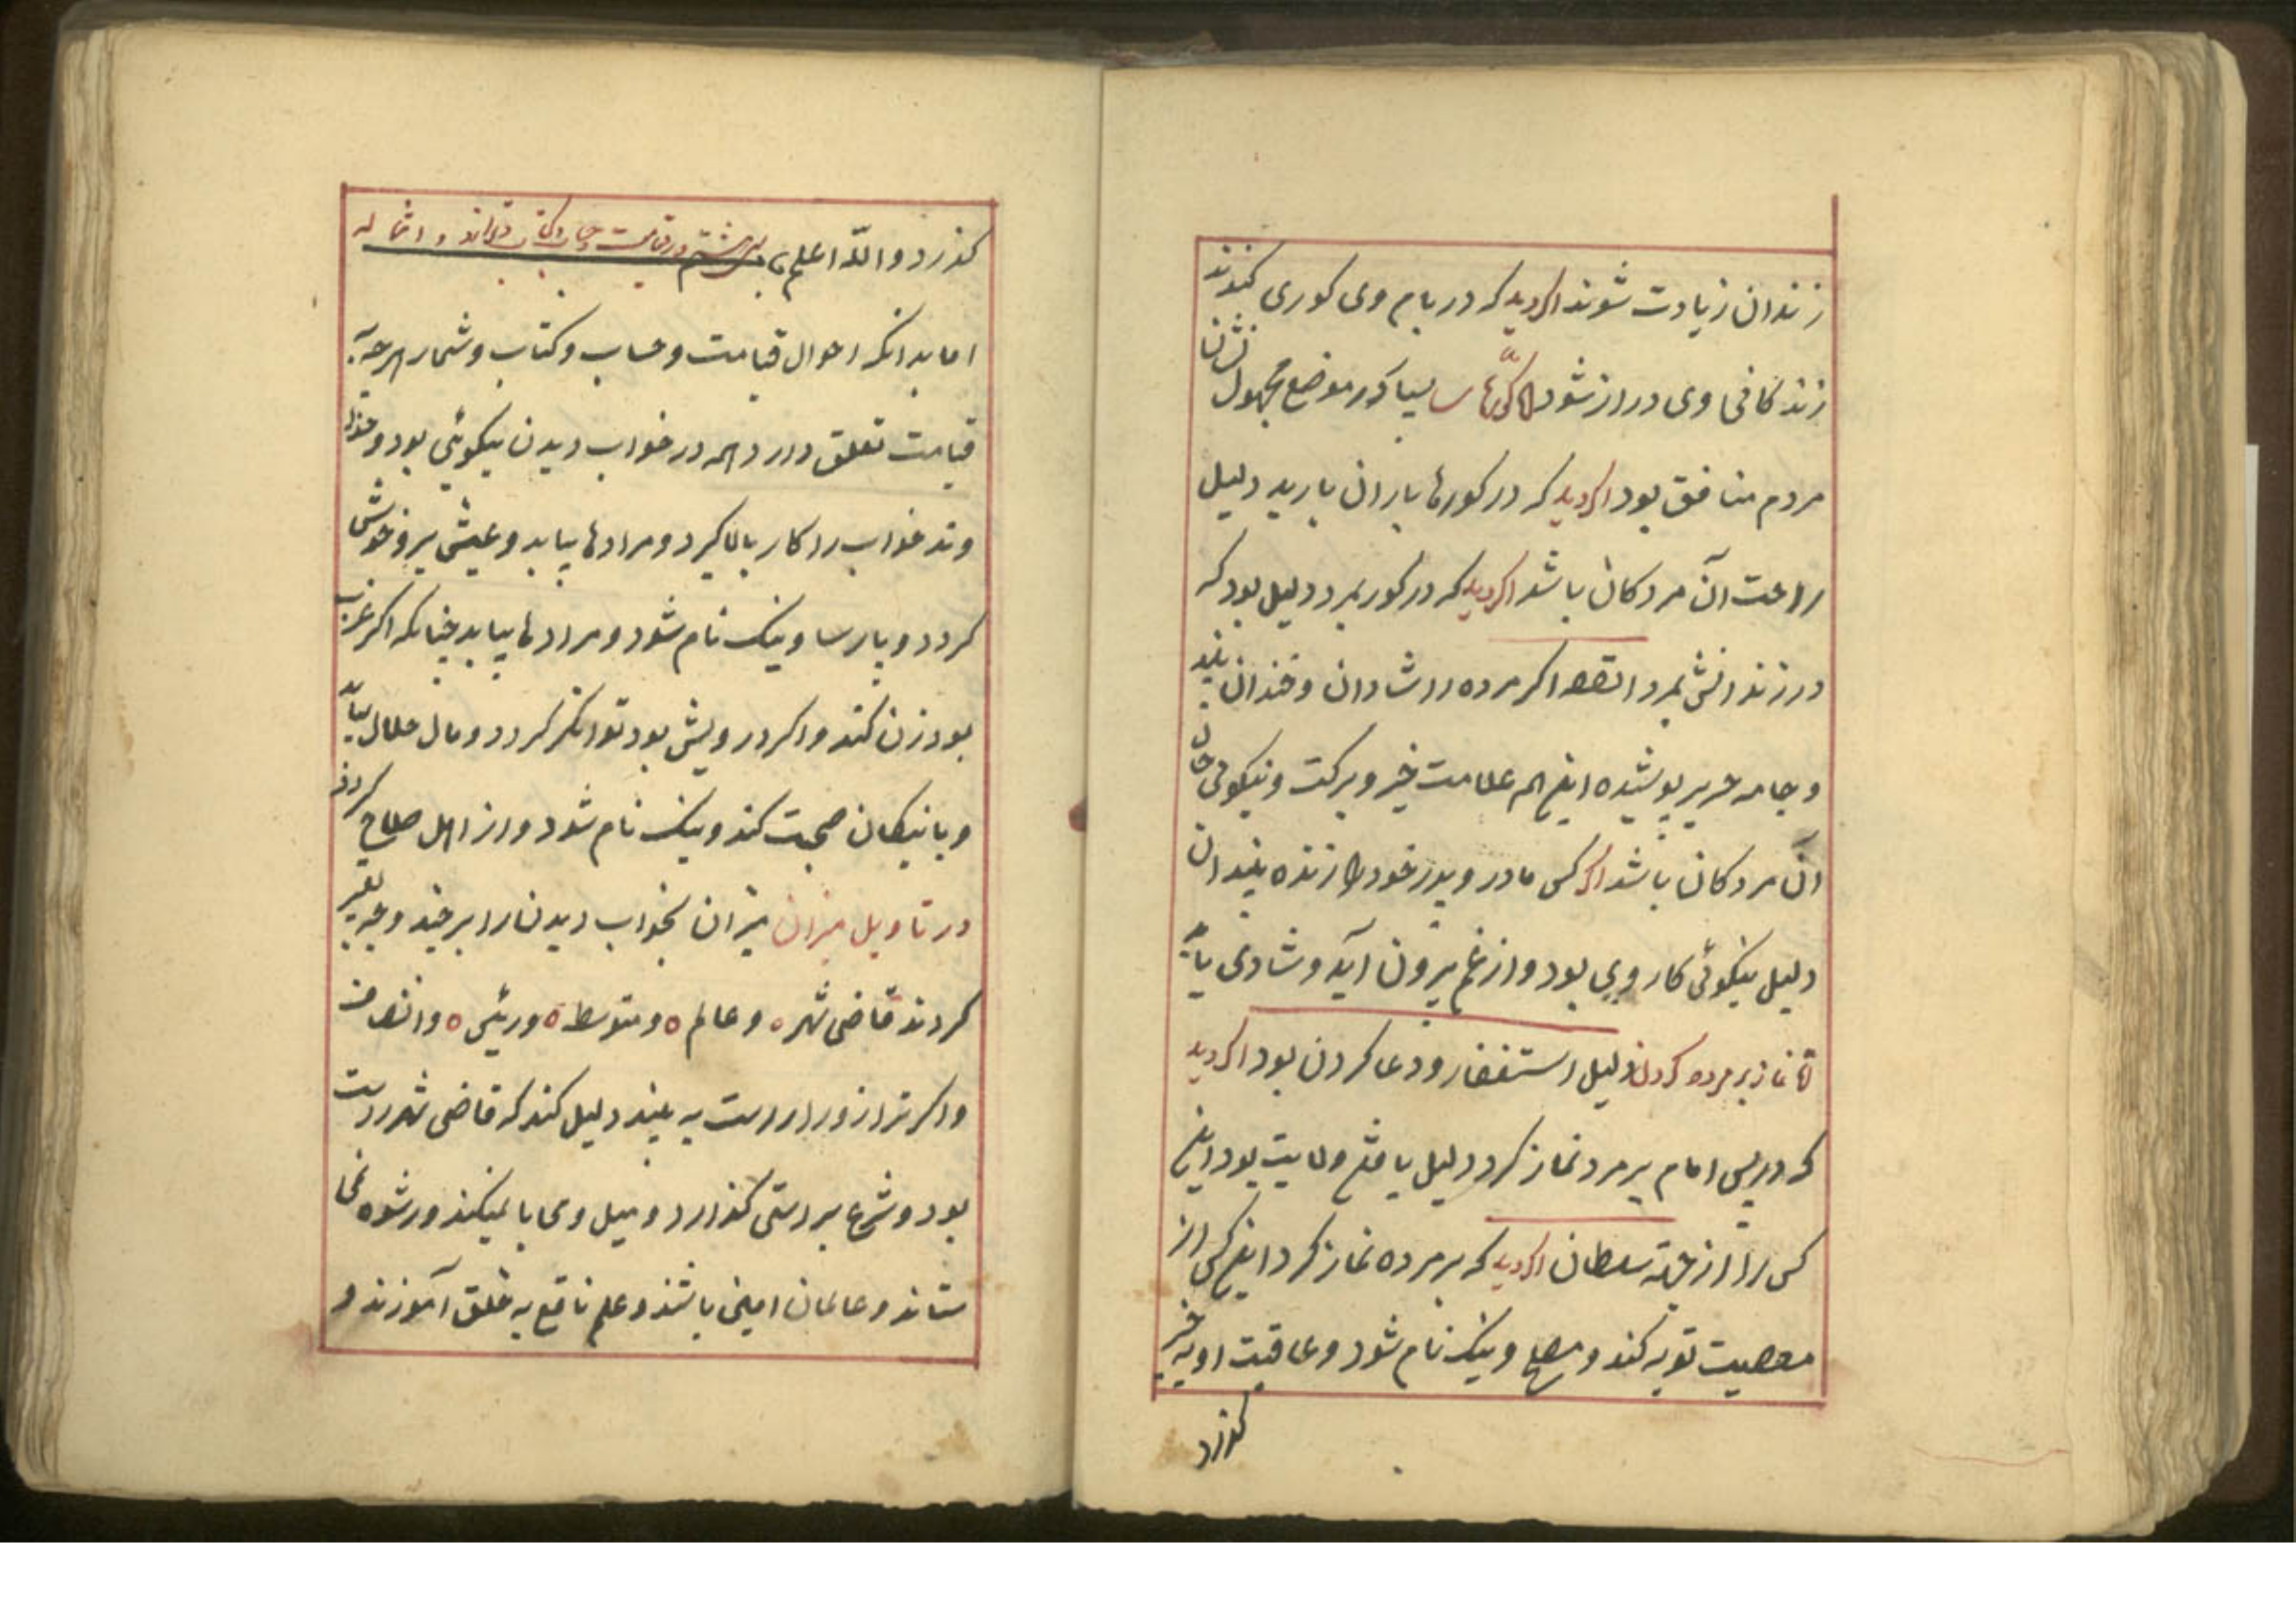 زندان زیادت شوند اکر دید که در بام وی کوری کندند
زندکانی وی دراز شود اکر کورهاء بسیار در موضع مجهول نشان
مردم منافق بود اکر دید که در کورها باران بارید دلیل
راحت آن مردکان باشد اکر دید که در کور بمرد دلیل بود که
در زندانش بمرد القصه اکر مرده را شادان و خندان بیند
و جامه حریر پوشیده اینهم علامت خیر و برکت و نیکوئی حال
آن مردکان باشد اکر کس مادر و پدر خود را زنده بیند ان
دلیل نیکوئی کار وی بود و از غم بیرون آید و شادی یابد
نماز بر مرده کردن دلیل استغفار و دعا کردن بود اکر دید
که در پس امام بر مرد نماز کرد دلیل یافتن ولایت بود این
کس را از جهة سلطان اکر دید که بر مرده نماز کرد این کس از
معصیت توبه کند و مصلح و نیک نام شود و عاقبت او به خیر
کذرد
کذرد و اللّه اعلم در قیامت و حساب و کتاب و ترازو و امثاله
اما بدانکه احوال قیامت و حساب و کتاب و شمار هرچه به
قیامت تعلق دارد همه در خواب دیدن نیکوئی بود و خدا
وند خواب را کار بالا کیرد و مرادها بیابد و عیشی بر و خوش
کردد و پارسا و نیک نام شود و مرادها بیابد چنانکه اکر عزب
بود زن کند و اکر درویش بود توانکر کردد و مال حلال بیابد
و با نیکان صحبت کند و نیک نام شود و از اهل صلاح کردد
در تاویل میزان میزان بخواب دیدن را بر چند وجه تعبیر
کردند قاضی شهر ه و عالم ه و متوسط ه و رئیس ه و انصاف
و اکر ترازو را راست به بیند دلیل کند که قاضی شهر راست
بود و شرع براستی کذارد و میل و محابا نمیکند و رشوه نمی
ستاند و عالمان امینی باشند و علم نافع به خلق آموزند و